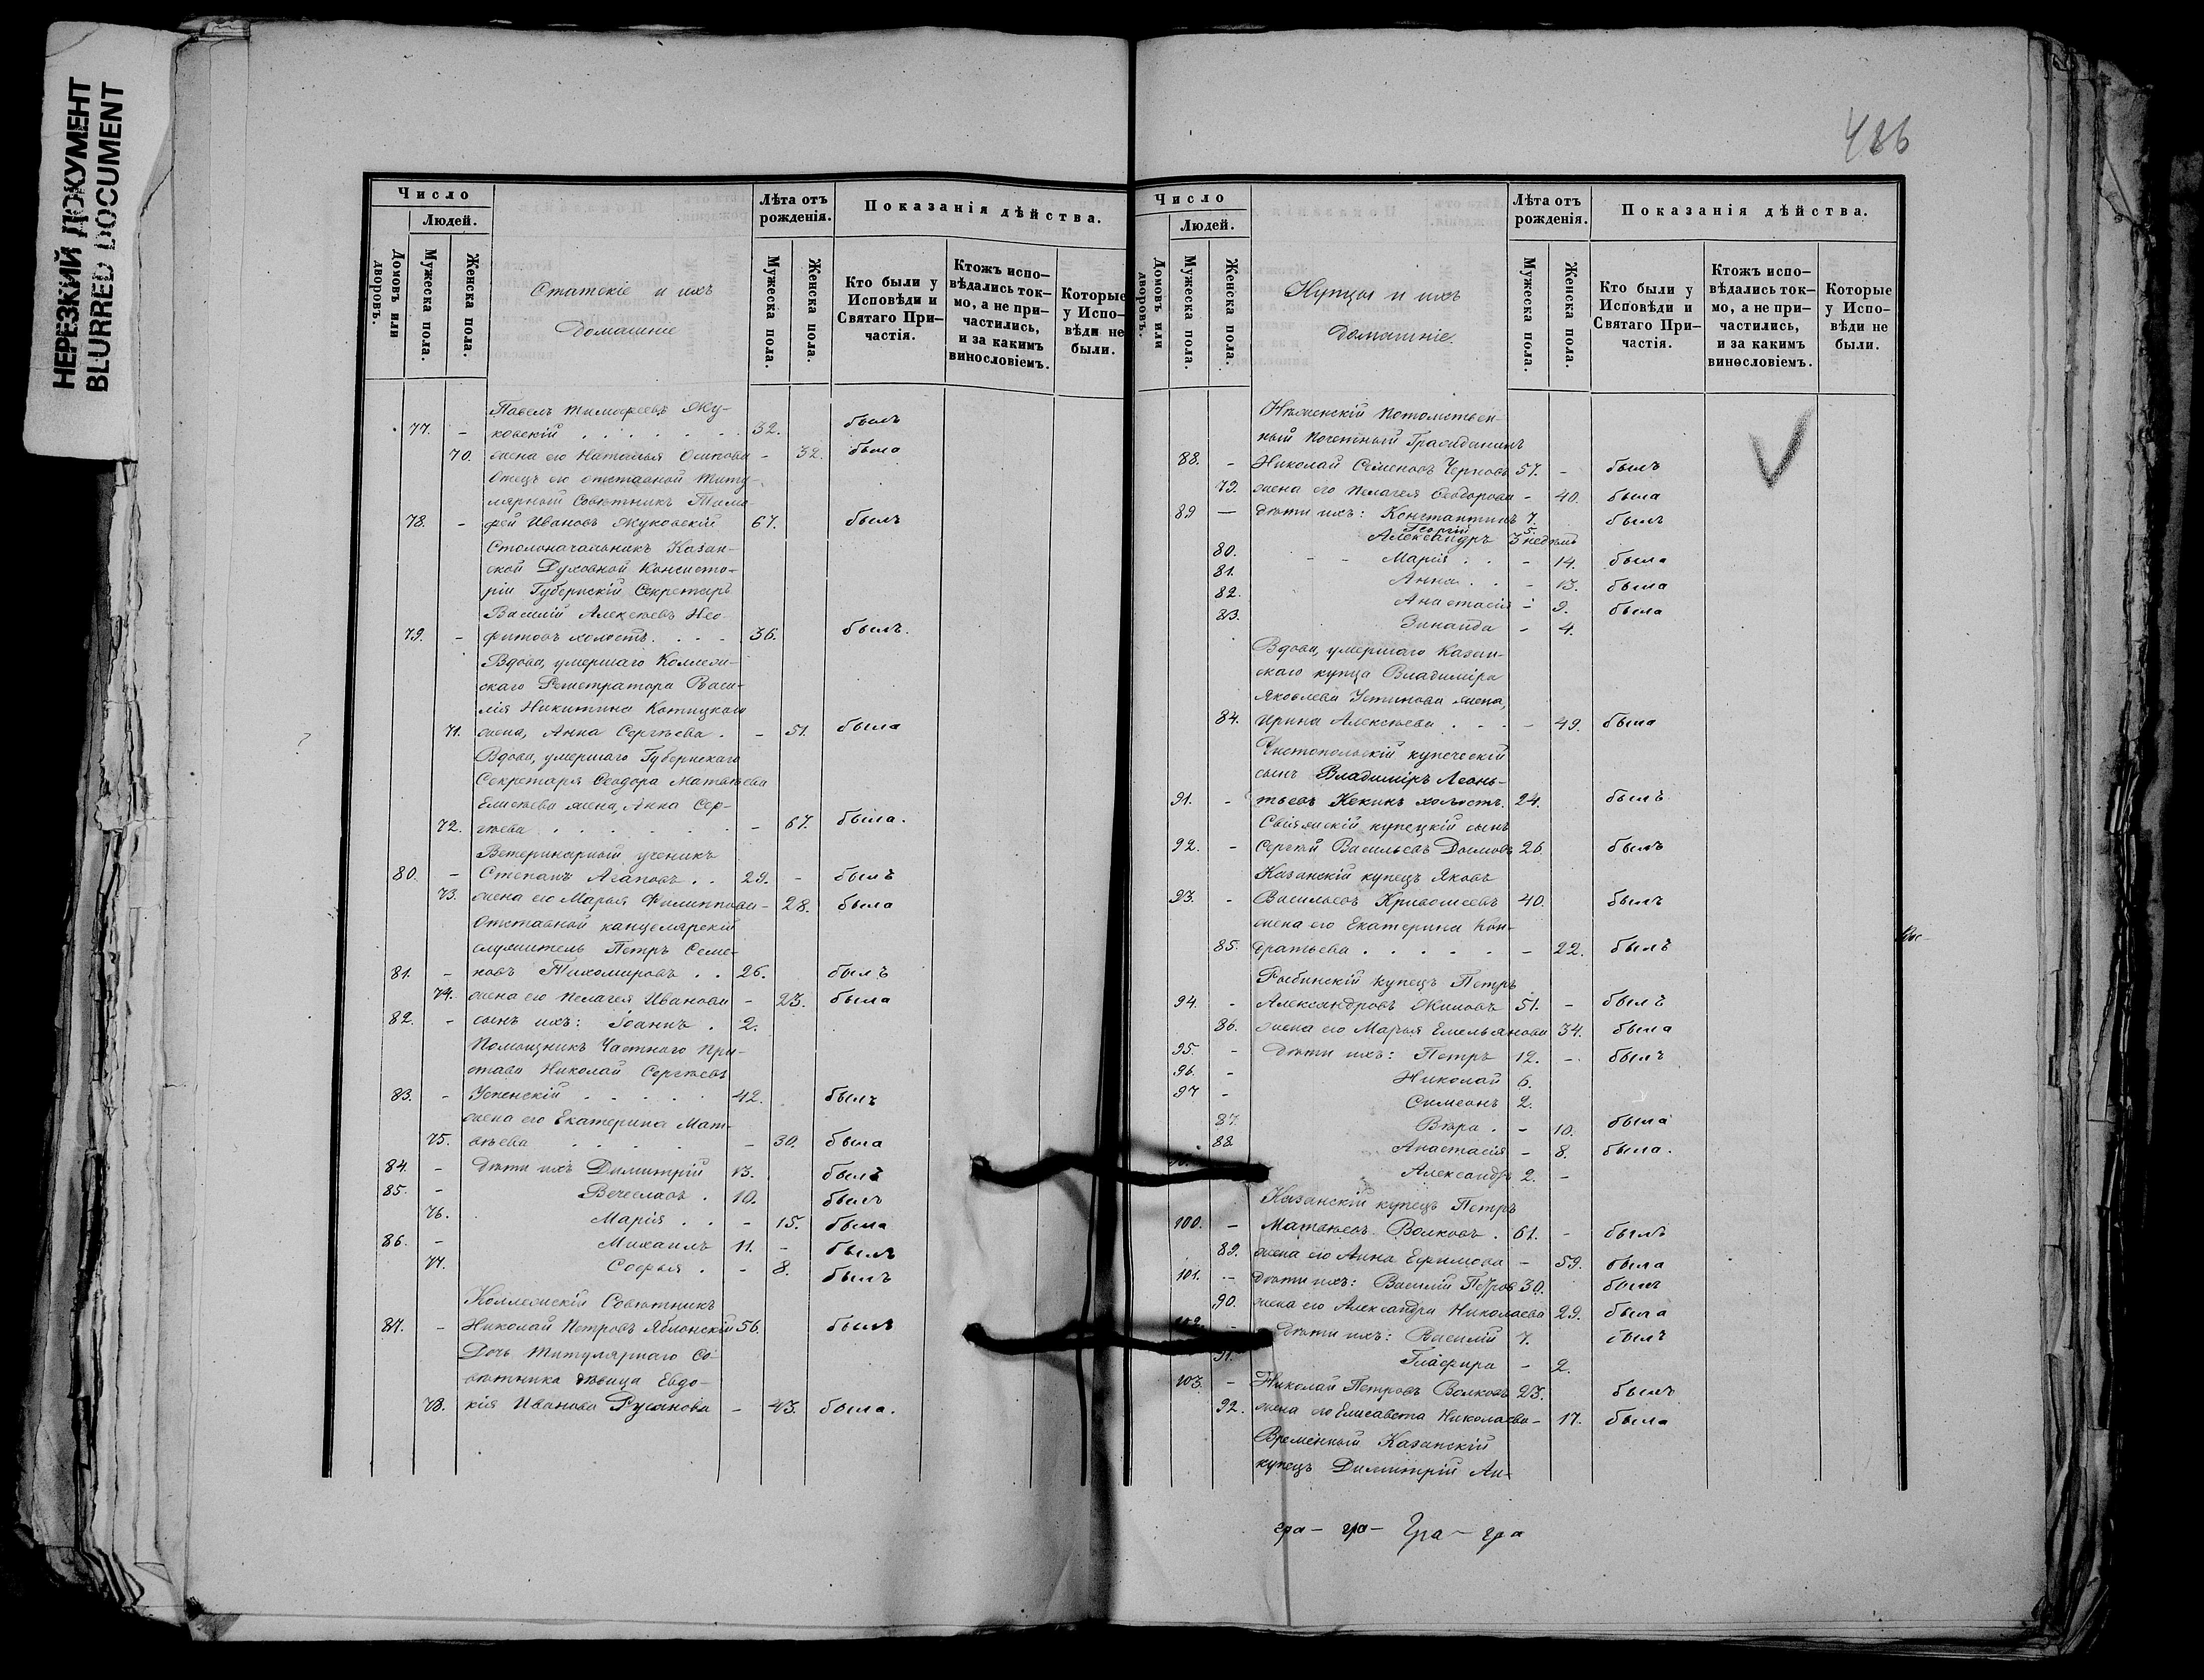 НЕРЕЗКИЙ ДОКУМЕНТ
BLURRED DOCUMENT
486
Число
Людей.
Домовъ или дворовъ.
Мужеска пола.
Женска пола.
Статскіе и ихъ
домашніе
Лѣта отъ рожденія.
Мужеска пола.
Женска пола.
Показанія дѣйства.
Кто были у Исповѣди и Святаго Причастія.
Ктожъ исповѣдались токмо, а не причастились, и за какимъ винословіемъ.
Которые у Исповѣди не были.
Павелъ Тимофеевъ Жу-
77. - ковскій . . . . . . 32. былъ
70. жена его Наталья Осипова - 32. была
Отецъ его отставной Титу-
лярный Совѣтникъ Тимо-
78. - фей Ивановъ Жуковскій 67. былъ
Столоначальникъ Казан-
ской Духовной Консисто-
ріи Губернскій Секретарь
Василій Алексѣевъ Нео-
79. - фитовъ холостъ. . . - 36. былъ.
Вдова, умершаго Коллеж-
скаго Регистратора Васи-
лія Никитина Котицкаго
71. жена, Анна Сергѣева . - 51. была
Вдова, умершаго Губернскаго
Секретаря Ѳеодора Матвѣева
Елисѣева жена, Анна Сер-
72. гѣева . . . . . . . - 67. была.
Ветеринарный ученикъ
80. - Степанъ Агаповъ . . 29. - былъ
73. жена его Марья Филиппова - 28. была
Отставной канцелярскій
служитель Петръ Семе-
81. - новъ Тихомировъ . . 26. былъ
74. жена его Пелагея Иванова - 23. была
82. - сынъ ихъ: Іоаннъ . 2.
Помощникъ Частнаго при-
става Николай Сергѣевъ
83. - Успенскій . . . . . 42. былъ
жена его Екатерина Мат-
75. вѣева . . . . . - 30. была
84. - дѣти ихъ Димитрій 13. былъ
85. - Вячеславъ . 10. былъ
76. Марія . . - 15. была
86. - Михаилъ 11. - былъ
77. Софья . - 8. былъ
Коллежскій Совѣтникъ
87. - Николай Петровъ Яблонскій 56. былъ
Дочь Титулярнаго Со-
вѣтника дѣвица Евдо-
78. кія Иванова Русанова - 43. была.
Число
Людей.
Домовъ или дворовъ.
Мужеска пола.
Женска пола.
Купцы и ихъ
домашніе.
Лѣта отъ рожденія.
Мужеска пола.
Женска пола.
Показанія дѣйства.
Кто были у Исповѣди и Святаго Причастія.
Ктожъ исповѣдались токмо, а не причастились, и за какимъ винословіемъ.
Которые у Исповѣди не были.
Потомствен-
ный Почетный Гражданинъ
88. - Николай Семеновъ Черновъ 57. - былъ
79. жена его Пелагея Ѳеодорова - 40. была
89 — дѣти ихъ: Константинъ 7. былъ
Георгій 5.
Александръ 3 недѣль
80. - - Марія . . - 14. была
81. Анна . . - 13. была
82. Анастасія - 9. была
83. Зинаида - 4.
Вдова, умершаго Казан-
скаго купца Владиміра
Яковлева Устинова жена,
84. Ирина Алексѣева . . . - 49. была
Чистопольскій купеческій
сынъ Владиміръ Леонь-
91. - тьевъ Кекинъ холостъ. 24. былъ
Свіяжскій купецкій сынъ
92. - Сергѣй Васильевъ 26. былъ
Казанскій купецъ Яковъ
93. - Васильевъ Кривошеевъ 40. былъ
жена его Екатерина Кон-
85. дратьева . . . . . - 22. былъ
Рыбинскій купецъ Петръ
94. - Александровъ Жиловъ 51. - былъ
86. жена его Марья Емельянова 34. была
95. - дѣти ихъ: Петръ 12. - былъ
96. - Николай 6.
97 - Симеонъ 2.
87. Вѣра . - 10. была
88. Анастасія - 8. была.
Александръ 2. -
Казанскій купецъ Петръ
100. - Матвѣевъ Волковъ . 61. - былъ
89. жена его Анна Ефимова - 59. была
101. - дѣти ихъ: Василій Петровъ 30. былъ
90. жена его Александра Николаева 29. была
102. - дѣти ихъ: Василій 7. былъ
91. Глафира - 2.
103. - Николай Петровъ Волковъ 23. былъ
92. жена его Елисавета Николаева - 17. была
Временный Казанскій
купецъ Димитрій Ан-
гра- гра- Гра- гра